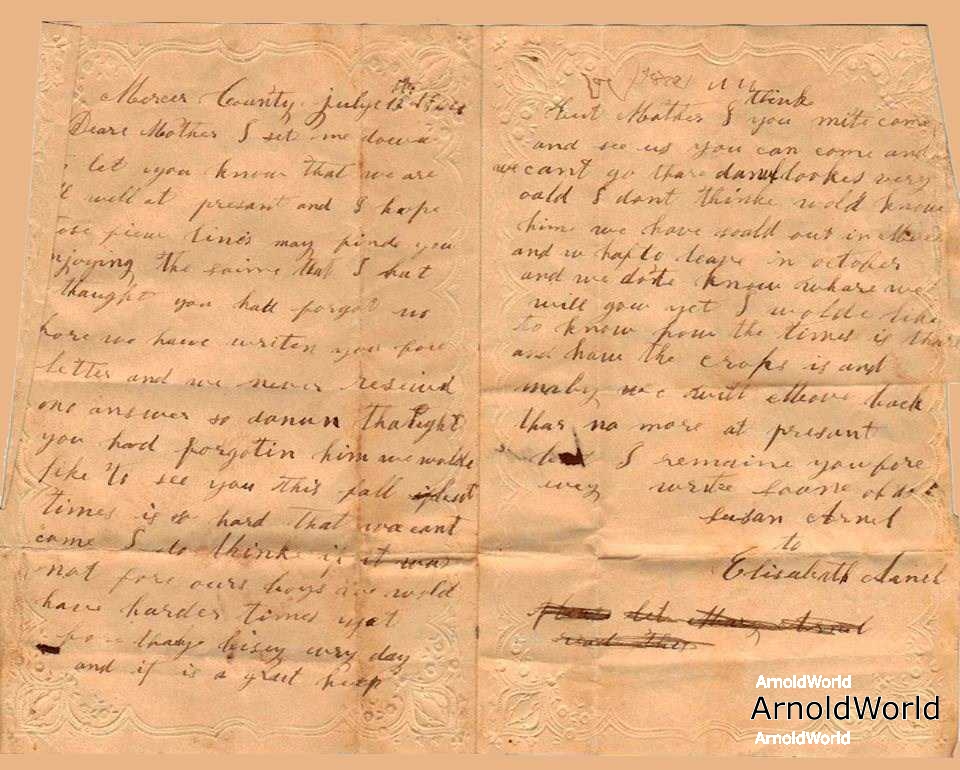 Mercer County july
Dear Mother I set me down
let you know that we are
well at present and I hope
few lines may finde you
the saime that I but
thaught you hatt forgot us
fore we have writen you fore
letter and we never reseived
one answer so danun thaught
you had forgotin him we wolde
like to see you this fall
times is so hard that we cant
come I do thinke if it was
not fore ours boys we wold
have harder times yet
bisey evry day
and it is a grat heep
think
but Mother I you mite come
and see us you can come and
we cant go thare danu lookes very
oald I dont thinke wold know
him we have soald out in
and to leave in october
and we dote know whare we
will gow yet I wolde like
to know how the times is thare
and how the crops is and
maby we will Move back
thar no more at present
but I remaine you fore
evry write soone
Susan Arnel
to
Elisabeth Arnel
ArnoldWorld
ArnoldWorld
ArnoldWorld